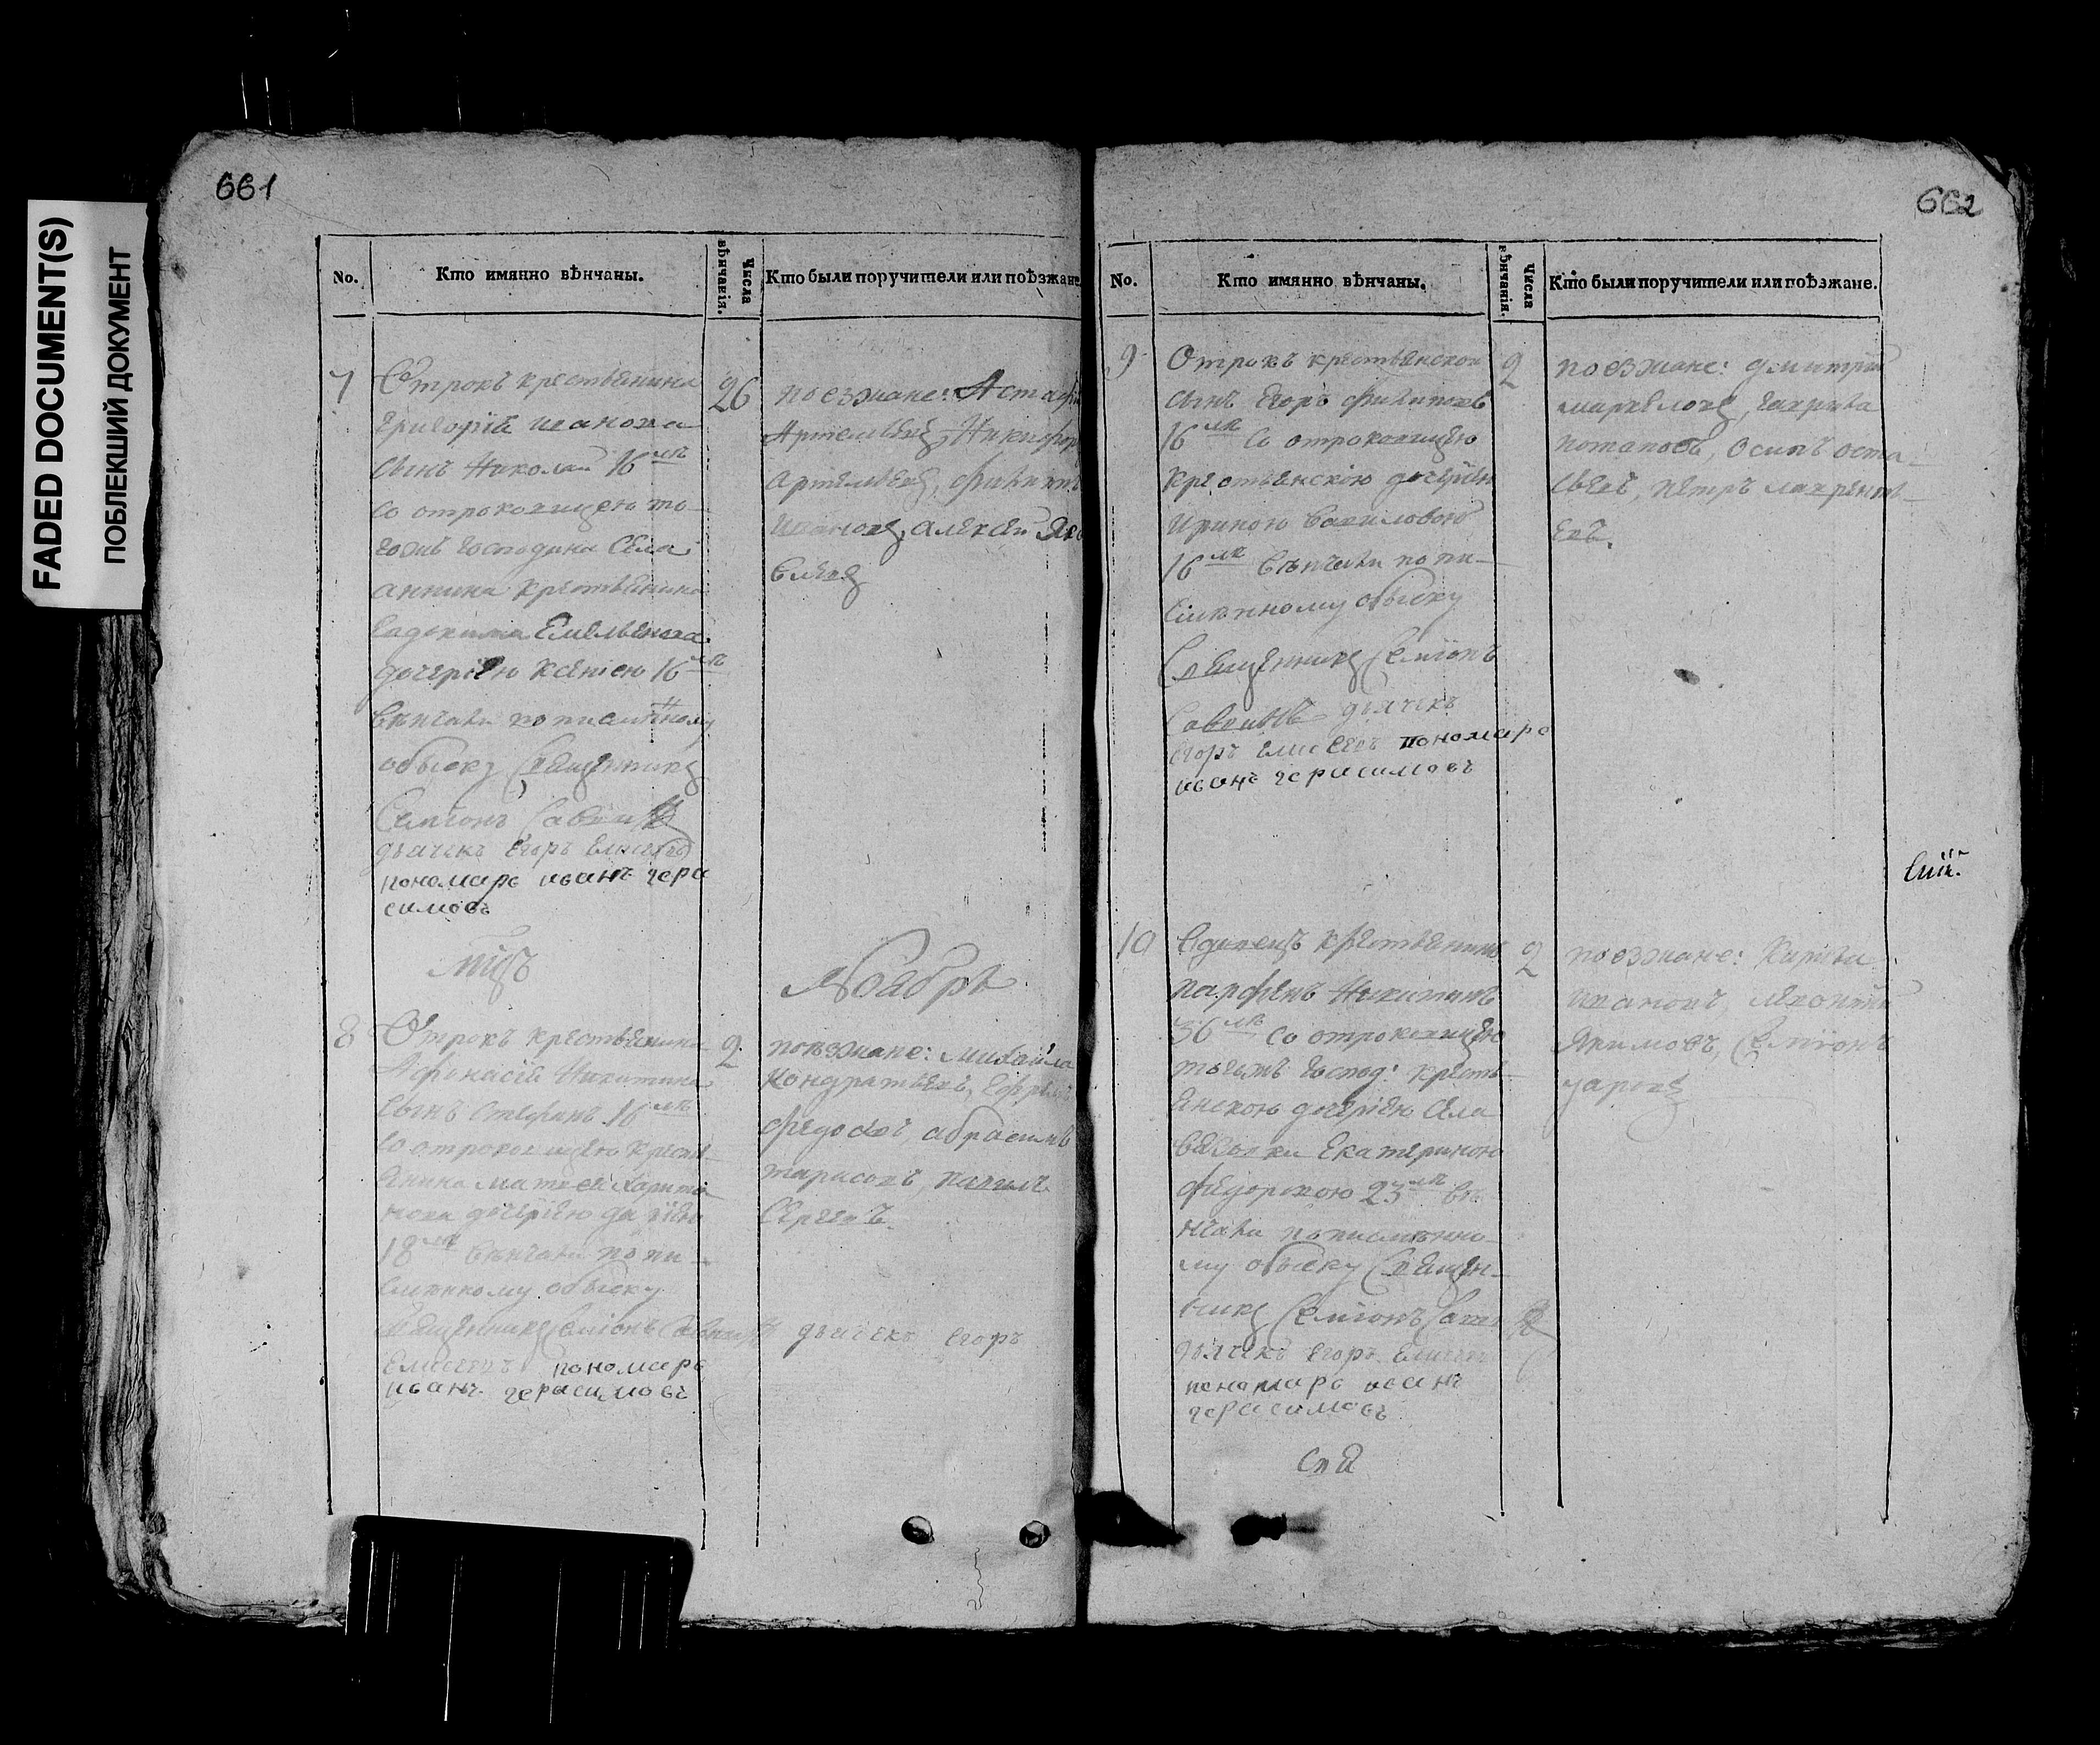 FADED DOCUMENT(S)
ПОБЛЕКШИЙ ДОКУМЕНТ
661
No.
Кто имянно вѣнчаны.
Числа вѣнчанія.
Кто были поручители или поѣзжане.
7
Отрокъ крестьянина
Григорїя иванова
сынъ Николай 16 лѣтъ
со отроковицею то-
гожъ господина села
аннина крестьянина
Евдокима Емельянова
дочерїею Ксениею 16 лѣтъ
венчали по писменному
обыску Священникъ
Семїонъ Саввинъ
дьячекъ Егоръ Елисеевъ
пономарь иванъ гера
симовъ
26
поезжане: Астафи
Артемьевъ, Никифор
Артемьевъ, филиппъ
Ивановъ, алексей Яко
влевъ
мцъ
Ноябрь
8
Отрокъ крестьянина
Афонасїя Никитина
сынъ Стефанъ 16 лѣтъ
со отроковицею кресть-
янина матвея Харито
нова дочерїею дарїею
18 лѣтъ венчали по пи-
сменному обыску
Священникъ Семїонъ Саввинъ дьячекъ Егоръ
Елисеевъ пономарь
иванъ герасимовъ
2
поезжане: михайла
Кондратьевъ, Ефремъ
федосовъ, абрамъ
тарасовъ, павелъ
Сергеевъ.
662
No.
Кто имянно вѣнчаны.
Числа вѣнчанія.
Кто были поручители или поѣзжане.
9
Отрокъ крестьянской
сынъ Егоръ филиповъ
16 лѣтъ со отроковицею
крестьянскою дочерїею
Ириною Вавиловою
16 лѣтъ венчали по пи-
сменному обыску
Священникъ Семїонъ
Саввинъ дьячекъ
Егоръ Елисеевъ пономарь
иванъ герасимовъ
2
поезжане: дмитрий
маркеловъ, гаврила
потаповъ, осипъ оста-
фьевъ, петръ лаврентьь-
евъ.
10
Вдовецъ крестьянинъ
парфенъ Никитинъ
36 лѣтъ со отроковицею
тогожъ господ: кресть-
янскою дочерїею села
Екатериною
федоровою 23 лѣтъ вѣ
нчали по писменно-
му обыску Священ-
никъ Семїонъ Саввинъ
дьячекъ Егоръ Елисеевъ
пономарь иванъ
герасимовъ
2
поезжане: Кирила
Ивановъ, леонтий
Якимовъ, Семїонъ